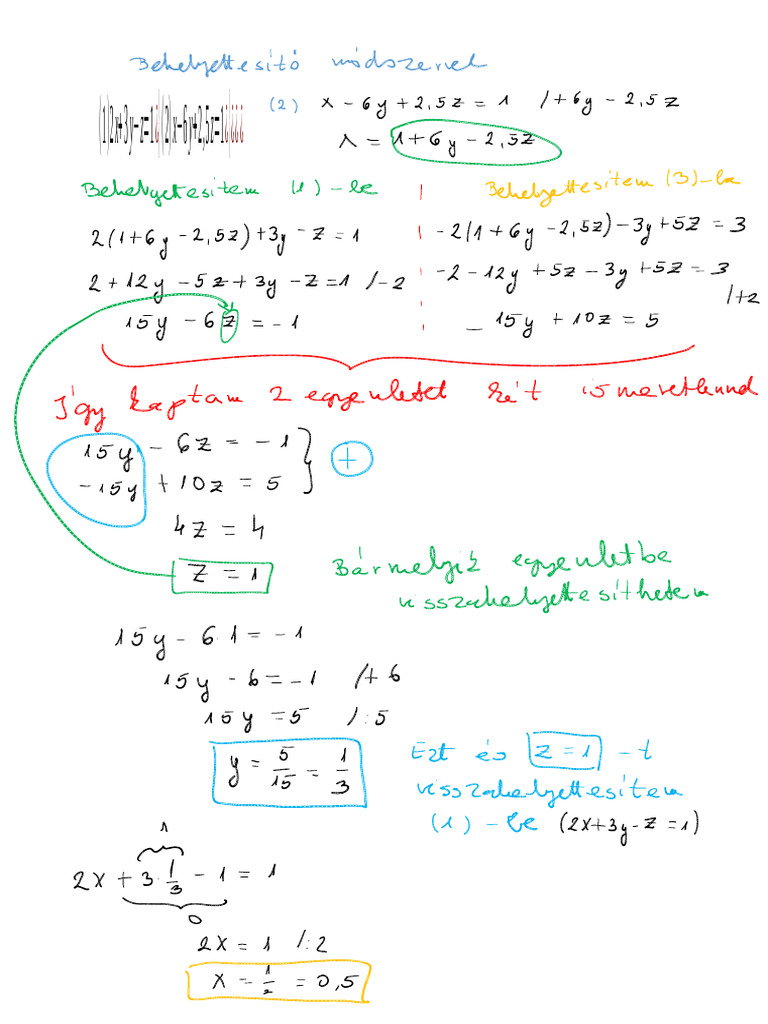 Behelyettesítő módszerrel
(1)2x+3y−z=1¿(2)x−6y+2,5z=1¿¿¿¿
(2) x − 6y + 2,5z = 1 /+6y − 2,5z
x = 1 + 6y − 2,5z
Behelyettesítem (1)-be
2(1+6y − 2,5z)+3y − z = 1
2 + 12y − 5z + 3y − z = 1 /−2
15y − 6z = −1
Behelyettesítem (3)-ba
−2(1+6y − 2,5z) − 3y + 5z = 3
−2 − 12y + 5z − 3y + 5z = 3
/+2
− 15y + 10z = 5
Így kaptam 2 egyenletet két ismeretlennel
15y − 6z = −1
−15y + 10z = 5
+
4z = 4
z = 1
Bármelyik egyenletbe
visszahelyettesíthetem
15y − 6·1 = −1
15y − 6 = −1 /+6
15y = 5 /:5
y = 5/15 = 1/3
Ezt és z = 1 -t
visszahelyettesítem
(1) - be (2x+3y−z=1)
1
2x + 3·1/3 − 1 = 1
0
2x = 1 /:2
x = 1/2 = 0,5